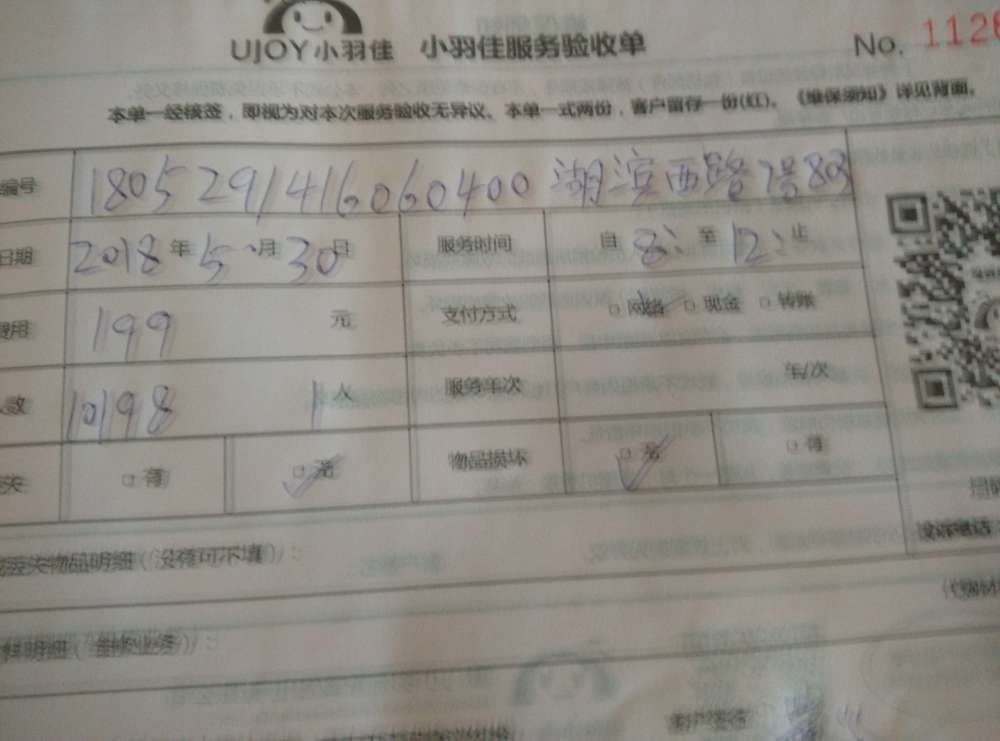 UJOY小羽佳 小羽佳服务验收单 No. 1126
本单一经核签，即视为对本次服务验收无异议。本单一式两份，客户留存一份(红)。《维保须知》详见背面。
编号 1805291416060400 湖滨西路7号803
日期 2018年5月30日 服务时间 自 8: 至 12: 止
费用 199 元 支付方式 □网络 □现金 □转账
人数 10198 1人 服务车次 车/次
失 □有 □无 物品损坏 □无 □有
遗失物品明细(没有可不填)：
投诉电话
料明细(维修业务)：
客户签名